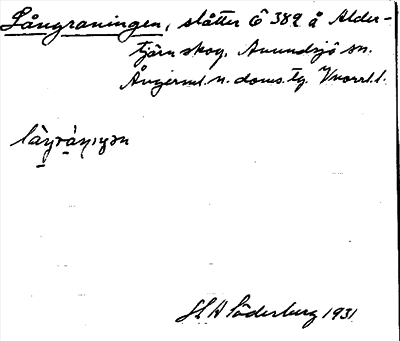 Långraningen, slåtter Ö 389 å Alder-
tjärn skog, Anundsjö sn.
Ångerml. n. doms. tg. Vnorrl. l.
làŋràṇiŋən
H A Söderberg 1931